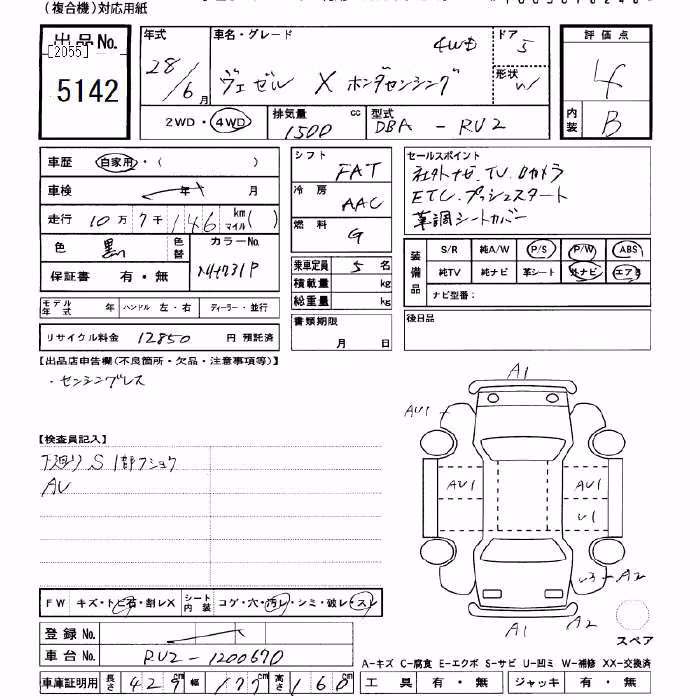 (複合機)対応用紙
出品No.
[2055]
5142
年式
28/6月
車名・グレード
ヴェゼル X ホンダセンシング
4WD
ドア
5
形状
W
評価点
4
内装
B
2WD・4WD
排気量
1500
cc
型式
DBA - RU2
車歴
自家用・( )
車検
年 月
走行
10万7千146 km マイル( )
色
黒
色替
カラーNo.
NH731P
保証書 有・無
モデル年式
年
ハンドル 左・右
ディーラー・並行
リサイクル料金 12850 円 預託済
シフト
FAT
冷房
AAC
燃料
G
乗車定員 5 名
積載量 kg
総重量 kg
書類期限
月 日
セールスポイント
社外ナビ.TV.Bカメラ
ETC.プッシュスタート
革調シートカバー
装備品
S/R 純A/W P/S P/W ABS
純TV 純ナビ 革シート 外ナビ エアB
ナビ型番:
後日品
【出品店申告欄(不良箇所・欠品・注意事項等)】
・センシングレス
【検査員記入】
下廻りS 1部フショク
AU
A1
AU1
AU1
AU1
U1
U3
A2
A1
A2
スペア
FW キズ・トビ石・割レX
シート内装
コゲ・穴・汚レ・シミ・破レ・スレ
登録No.
車台No. RU2-1200670
車庫証明用
長さ 429 cm
幅 177 cm
高さ 160 cm
A-キズ C-腐食 E-エクボ S-サビ U-凹ミ W-補修 XX-交換済
工具 有・無
ジャッキ 有・無